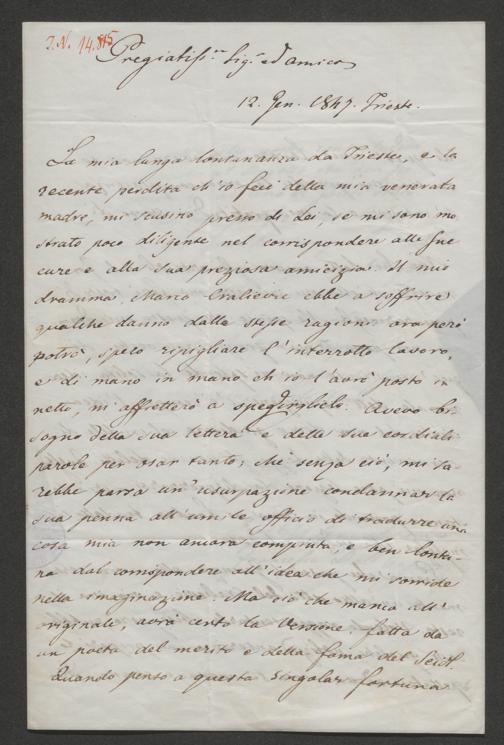 I. N. 14.815
Pregiatiss.mo Sig.r ed amico
12. Gen. 1847. Trieste.
La mia lunga lontananza da Trieste, e la
recente perdita ch'io feci della mia venerata
madre, mi scusino presso di Lei, se mi sono mo
strato poco diligente nel corrispondere alle sue
cure e alla sua preziosa amicizia. Il mio
dramma, Marco Cralievic ebbe a soffrire
qualche danno dalle stesse ragioni ora però
potrò, spero ripigliare l'interrotto lavoro,
e di mano in mano ch'io l'avrò posto in
netto, mi affretterò a spedirglielo. Avevo bi
sogno della sua lettera e delle sue cordiali
parole per osar tanto; chè senza ciò, mi sa
rebbe parsa un'usurpazione condannar la
sua penna all'umile officio di tradurre una
cosa mia non ancora compiuta, e ben lonta-
na dal corrispondere all'idea che mi sorride
nella imaginazione. Ma ciò che manca all'
originale, avrà certo la Versione fatta da
un poeta del merito e della fama del Seidl
Quando penso a questa singolar fortuna